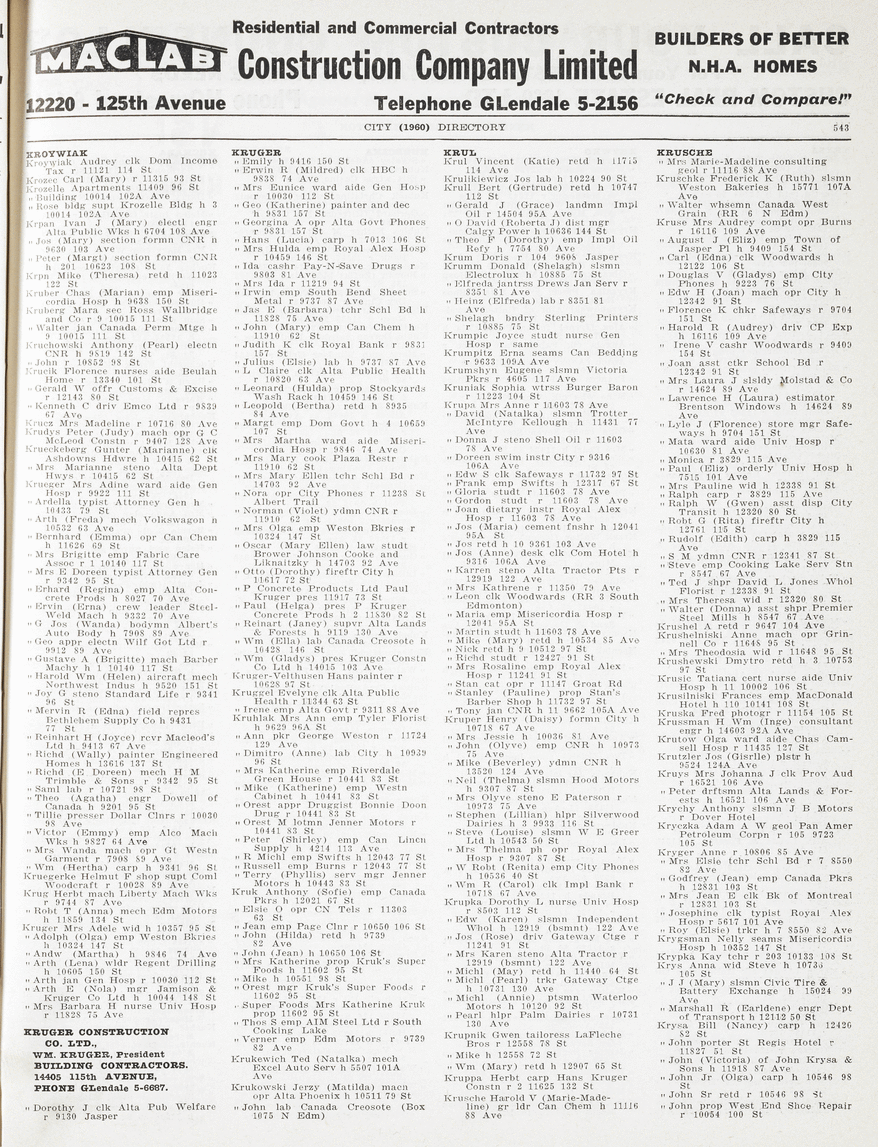 MACLAB
Residential and Commercial Contractors
Construction Company Limited
12220 - 125th Avenue
Telephone GLendale 5-2156
BUILDERS OF BETTER
N.H.A. HOMES
"Check and Compare!"
CITY (1960) DIRECTORY
543
KROYWIAK
Kroywiak Audrey clk Dom Income
Tax r 11121 114 St
Krozec Carl (Mary) r 11315 93 St
Krozelle Apartments 11409 96 St
" Building 10014 102A Ave
" Rose bldg supt Krozelle Bldg h 3
10014 102A Ave
Krpan Ivan J (Mary) electl engr
Alta Public Wks h 6704 108 Ave
" Jos (Mary) section formn CNR h
9630 103 Ave
" Peter (Margt) section formn CNR
h 201 10623 108 St
Krpn Mike (Theresa) retd h 11023
122 St
Kruber Chas (Marian) emp Miseri-
cordia Hosp h 9638 150 St
Kruberg Mara sec Ross Wallbridge
and Co r 9 10015 111 St
" Walter jan Canada Perm Mtge h
9 10015 111 St
Kruchowski Anthony (Pearl) electn
CNR h 9819 142 St
" John r 10852 98 St
Krucik Florence nurses aide Beulah
Home r 13340 101 St
" Gerald W offr Customs & Excise
r 12143 80 St
" Kenneth C driv Emco Ltd r 9839
67 Ave
Krucz Mrs Madeline r 10716 80 Ave
Krudys Peter (Judy) mach opr G C
McLeod Constn r 9407 128 Ave
Krueckeberg Gunter (Marianne) clk
Ashdowns Hdwre h 10415 62 St
" Mrs Marianne steno Alta Dept
Hwys r 10415 62 St
Krueger Mrs Adine ward aide Gen
Hosp r 9922 111 St
" Ardella typist Attorney Gen h
10433 79 St
" Arth (Freda) mech Volkswagen h
10532 63 Ave
" Bernhard (Emma) opr Can Chem
h 11626 69 St
" Mrs Brigitte emp Fabric Care
Assoc r 1 10140 117 St
" Mrs E Doreen typist Attorney Gen
r 9342 95 St
" Erhard (Regina) emp Alta Con-
crete Prods h 8027 70 Ave
" Ervin (Erna) crew leader Steel-
Weld Mach h 9332 70 Ave
" G Jos (Wanda) bodymn Albert's
Auto Body h 7908 89 Ave
" Geo appr electn Wilf Got Ltd r
9912 89 Ave
" Gustave A (Brigitte) mach Barber
Machy h 1 10140 117 St
" Harold Wm (Helen) aircraft mech
Northwest Indus h 9520 151 St
" Joy G steno Standard Life r 9341
96 St
" Mervin R (Edna) field repres
Bethlehem Supply Co h 9431
77 St
" Reinhart H (Joyce) rcvr Macleod's
Ltd h 9413 67 Ave
" Richd (Wally) painter Engineered
Homes h 13616 137 St
" Richd (E Doreen) mech H M
Trimble & Sons r 9342 95 St
" Saml lab r 10721 98 St
" Theo (Agatha) engr Dowell of
Canada h 9201 95 St
" Tillie presser Dollar Clnrs r 10030
98 Ave
" Victor (Emmy) emp Alco Mach
Wks h 9827 64 Ave
" Mrs Wanda mach opr Gt Westn
Garment r 7908 89 Ave
" Wm (Hertha) carp h 9341 96 St
Kruegerke Helmut F shop supt Coml
Woodcraft r 10028 89 Ave
Krug Herbt mach Liberty Mach Wks
r 9744 87 Ave
" Robt T (Anna) mech Edm Motors
h 11859 134 St
Kruger Mrs Adele wid h 10357 95 St
" Adolph (Olga) emp Weston Bkries
h 10324 147 St
" Andw (Martha) h 9846 74 Ave
" Arth (Lena) wldr Regent Drilling
h 10605 150 St
" Arth jan Gen Hosp r 10030 112 St
" Arth E (Nola) mgr Jamison &
Kruger Co Ltd h 10044 148 St
" Mrs Barbara H nurse Univ Hosp
r 11828 75 Ave
KRUGER CONSTRUCTION
CO. LTD.,
WM. KRUGER, President
BUILDING CONTRACTORS.
14405 115th AVENUE,
PHONE GLendale 5-6687.
" Dorothy J clk Alta Pub Welfare
r 9130 Jasper
KRUGER
" Emily h 9416 150 St
" Erwin R (Mildred) clk HBC h
9838 74 Ave
" Mrs Eunice ward aide Gen Hosp
r 10030 112 St
" Geo (Katherine) painter and dec
h 9831 157 St
" Georgina A opr Alta Govt Phones
r 9831 157 St
" Hans (Lucia) carp h 7013 106 St
" Mrs Hulda emp Royal Alex Hosp
r 10459 146 St
" Ida cashr Pay-N-Save Drugs r
9803 81 Ave
" Mrs Ida r 11219 94 St
" Irwin emp South Bend Sheet
Metal r 9737 87 Ave
" Jas E (Barbara) tchr Schl Bd h
11828 75 Ave
" John (Mary) emp Can Chem h
11910 62 St
" Judith K clk Royal Bank r 9831
157 St
" Julius (Elsie) lab h 9737 87 Ave
" L Claire clk Alta Public Health
r 10820 63 Ave
" Leonard (Hulda) prop Stockyards
Wash Rack h 10459 146 St
" Leopold (Bertha) retd h 8935
84 Ave
" Margt emp Dom Govt h 4 10659
107 St
" Mrs Martha ward aide Miseri-
cordia Hosp r 9846 74 Ave
" Mrs Mary cook Plaza Restr r
11910 62 St
" Mrs Mary Ellen tchr Schl Bd r
14703 92 Ave
" Nora opr City Phones r 11238 St
Albert Trail
" Norman (Violet) ydmn CNR r
11910 62 St
" Mrs Olga emp Weston Bkries r
10324 147 St
" Oscar (Mary Ellen) law studt
Brower Johnson Cooke and
Liknaitzky h 14703 92 Ave
" Otto (Dorothy) fireftr City h
11617 72 St
" P Concrete Products Ltd Paul
Kruger pres 11917 73 St
" Paul (Helga) pres P Kruger
Concrete Prods h 2 11830 82 St
" Reinart (Janey) supvr Alta Lands
& Forests h 9119 130 Ave
" Wm (Ella) lab Canada Creosote h
10428 146 St
" Wm (Gladys) pres Kruger Constn
Co Ltd h 14015 103 Ave
Kruger-Velthusen Hans painter r
10628 97 St
Kruggel Evelyne clk Alta Public
Health r 11344 63 St
" Irene emp Alta Govt r 9311 88 Ave
Kruhlak Mrs Ann emp Tyler Florist
h 9629 96A St
" Ann pkr George Weston r 11724
129 Ave
" Dimitro (Anne) lab City h 10939
96 St
" Mrs Katherine emp Riverdale
Green House r 10441 83 St
" Mike (Katherine) emp Westn
Cabinet h 10441 83 St
" Orest appr Druggist Bonnie Doon
Drug r 10441 83 St
" Orest M lotmn Jenner Motors r
10441 83 St
" Peter (Shirley) emp Can Lincu
Supply h 4214 113 Ave
" R Michl emp Swifts h 12043 77 St
" Russell emp Burns r 12043 77 St
" Terry (Phyllis) serv mgr Jenner
Motors h 10443 83 St
Kruk Anthony (Sofie) emp Canada
Pkrs h 12021 67 St
" Elsie O opr CN Tels r 11303
63 St
" Jean emp Page Clnr r 10650 106 St
" John (Hilda) retd h 9739
82 Ave
" John (Jean) h 10650 106 St
" Mrs Katherine prop Kruk's Super
Foods h 11602 95 St
" Mike h 10551 98 St
" Orest mgr Kruk's Super Foods r
11602 95 St
" Super Foods Mrs Katherine Kruk
prop 11602 95 St
" Thos S emp AIM Steel Ltd r South
Cooking Lake
" Verner emp Edm Motors r 9739
82 Ave
Krukewich Ted (Natalka) mech
Excel Auto Serv h 5507 101A
Ave
Krukowski Jerzy (Matilda) macn
opr Alta Phoenix h 10511 79 St
" John lab Canada Creosote (Box
1075 N Edm)
KRUL
Krul Vincent (Katie) retd h 11715
114 Ave
Krulikiewicz Jos lab h 10224 90 St
Krull Bert (Gertrude) retd h 10747
112 St
" Gerald J (Grace) landmn Impl
Oil r 14504 95A Ave
" O David (Roberta J) dist mgr
Calgy Power h 10636 144 St
" Theo F (Dorothy) emp Impl Oil
Refy h 7754 80 Ave
Krum Doris r 104 9608 Jasper
Krumm Donald (Shelagh) slsmn
Electrolux h 10885 75 St
" Elfreda jantrss Drews Jan Serv r
8351 81 Ave
" Heinz (Elfreda) lab r 8351 81
Ave
" Shelagh bndry Sterling Printers
r 10885 75 St
Krumpic Joyce studt nurse Gen
Hosp r same
Krumpitz Erna seams Can Bedding
r 9633 109A Ave
Krumshyn Eugene slsmn Victoria
Pkrs r 4605 117 Ave
Kruniak Sophia wtrss Burger Baron
r 11223 104 St
Krupa Mrs Anne r 11603 78 Ave
" David (Natalka) slsmn Trotter
McIntyre Kellough h 11431 77
Ave
" Donna J steno Shell Oil r 11603
78 Ave
" Doreen swim instr City r 9316
106A Ave
" Edw S clk Safeways r 11732 97 St
" Frank emp Swifts h 12317 67 St
" Gloria studt r 11603 78 Ave
" Gordon studt r 11603 78 Ave
" Joan dietary instr Royal Alex
Hosp r 11603 78 Ave
" Jos (Maria) cement fnshr h 12041
95A St
" Jos retd h 10 9361 103 Ave
" Jos (Anne) desk clk Com Hotel h
9316 106A Ave
" Karren steno Alta Tractor Pts r
12919 122 Ave
" Mrs Kathrene r 11350 79 Ave
" Leon clk Woodwards (RR 3 South
Edmonton)
" Maria emp Misericordia Hosp r
12041 95A St
" Martin studt h 11603 78 Ave
" Mike (Mary) retd h 10534 85 Ave
" Nick retd h 9 10512 97 St
" Richd studt r 12427 91 St
" Mrs Rosaline emp Royal Alex
Hosp r 11241 91 St
" Stan cat opr r 11147 Groat Rd
" Stanley (Pauline) prop Stan's
Barber Shop h 11732 97 St
" Tony jan CNR h 11 9662 105A Ave
Kruper Henry (Daisy) formn City h
10718 67 Ave
" Mrs Jessie h 10036 81 Ave
" John (Olyve) emp CNR h 10973
75 Ave
" Mike (Beverley) ydmn CNR h
13520 124 Ave
" Neil (Thelma) slsmn Hood Motors
h 9307 87 St
" Mrs Olyve steno E Paterson r
10973 75 Ave
" Stephen (Lillian) hlpr Silverwood
Dairies h 3 9933 116 St
" Steve (Louise) slsmn W E Greer
Ltd h 10543 50 St
" Mrs Thelma ph opr Royal Alex
Hosp r 9307 87 St
" W Robt (Renita) emp City Phones
h 10536 40 St
" Wm R (Carol) clk Impl Bank r
10718 67 Ave
Krupka Dorothy L nurse Univ Hosp
r 8503 112 St
" Edw (Karen) slsmn Independent
Whol h 12919 (bsmnt) 122 Ave
" Jos (Rose) driv Gateway Ctge r
11241 91 St
" Mrs Karen steno Alta Tractor r
12919 (bsmnt) 122 Ave
" Michl (May) retd h 11440 64 St
" Michl (Pearl) trkr Gateway Ctge
h 10731 130 Ave
" Michl (Annie) ptsmn Waterloo
Motors h 10120 92 St
" Pearl hlpr Palm Dairies r 10731
130 Ave
Krupnik Gwen tailoress LaFleche
Bros r 12558 78 St
" Mike h 12558 72 St
" Wm (Mary) retd h 12907 65 St
Kruppa Herbt carp Hans Kruger
Constn r 2 11625 132 St
Krusche Harold V (Marie-Made-
line) gr ldr Can Chem h 11116
88 Ave
KRUSCHE
" Mrs Marie-Madeline consulting
geol r 11116 88 Ave
Kruschke Frederick K (Ruth) slsmn
Weston Bakeries h 15771 107A
Ave
" Walter whsemn Canada West
Grain (RR 6 N Edm)
Kruse Mrs Audrey compt opr Burns
r 16116 109 Ave
" August J (Eliz) emp Town of
Jasper Pl h 9409 154 St
" Carl (Edna) clk Woodwards h
12122 106 St
" Douglas V (Gladys) emp City
Phones h 9223 76 St
" Edw H (Joan) mach opr City h
12342 91 St
" Florence K chkr Safeways r 9704
151 St
" Harold R (Audrey) driv CP Exp
h 16116 109 Ave
" Irene V cashr Woodwards r 9409
154 St
" Joan asst ctkr School Bd r
12342 91 St
" Mrs Laura J slsldy Molstad & Co
r 14624 89 Ave
" Lawrence H (Laura) estimator
Brentson Windows h 14624 89
Ave
" Lyle J (Florence) store mgr Safe-
ways h 9704 151 St
" Mata ward aide Univ Hosp r
10630 81 Ave
" Monica r 3829 115 Ave
" Paul (Eliz) orderly Univ Hosp h
7515 101 Ave
" Mrs Pauline wid h 12338 91 St
" Ralph carp r 3829 115 Ave
" Ralph W (Gwen) asst disp City
Transit h 12320 80 St
" Robt G (Rita) fireftr City h
12761 115 St
" Rudolf (Edith) carp h 3829 115
Ave
" S M ydmn CNR r 12341 87 St
" Steve emp Cooking Lake Serv Stn
r 8547 67 Ave
" Ted J shpr David L Jones Whol
Florist r 12338 91 St
" Mrs Theresa wid r 12320 80 St
" Walter (Donna) asst shpr Premier
Steel Mills h 8547 67 Ave
Krushel A retd r 9647 104 Ave
Krushelniski Anne mach opr Grin-
nell Co r 11648 95 St
" Mrs Theodosia wid r 11648 95 St
Krushewski Dmytro retd h 3 10753
97 St
Krusic Tatiana cert nurse aide Univ
Hosp h 11 10002 106 St
Krusilniski Frances emp MacDonald
Hotel h 110 10141 108 St
Kruska Fred photogr r 11154 105 St
Krussman H Wm (Inge) consultant
engr h 14603 92A Ave
Krutow Olga ward aide Chas Cam-
sell Hosp r 11435 127 St
Krutzler Jos (Gisrlle) plstr h
9524 124A Ave
Kruys Mrs Johanna J clk Prov Aud
r 16521 106 Ave
" Peter drftsmn Alta Lands & For-
ests h 16521 106 Ave
Krychy Anthony slsmn J B Motors
r Dover Hotel
Kryczka Adam A W geol Pan Amer
Petroleum Corpn r 105 9723
105 St
Kryger Anne r 10806 85 Ave
" Mrs Elsie tchr Schl Bd r 7 8550
82 Ave
" Godfrey (Jean) emp Canada Pkrs
h 12831 103 St
" Mrs Jean E clk Bk of Montreal
r 12831 103 St
" Josephine clk typist Royal Alex
Hosp r 5617 101 Ave
" Roy (Elsie) trkr h 7 8550 82 Ave
Krygsman Nelly seams Misericordia
Hosp h 10352 147 St
Krypka Kay tchr r 203 10133 108 St
Krys Anna wid Steve h 10736
105 St
" J J (Mary) slsmn Civic Tire &
Battery Exchange h 15024 99
Ave
" Marshall R (Earldene) engr Dept
of Transport h 12112 50 St
Krysa Bill (Nancy) carp h 12426
82 St
" John porter St Regis Hotel r
11827 51 St
" John (Victoria) of John Krysa &
Sons h 11918 87 Ave
" John Jr (Olga) carp h 10546 98
St
" John Sr retd r 10546 98 St
" John prop West End Shoe Repair
r 10054 100 St